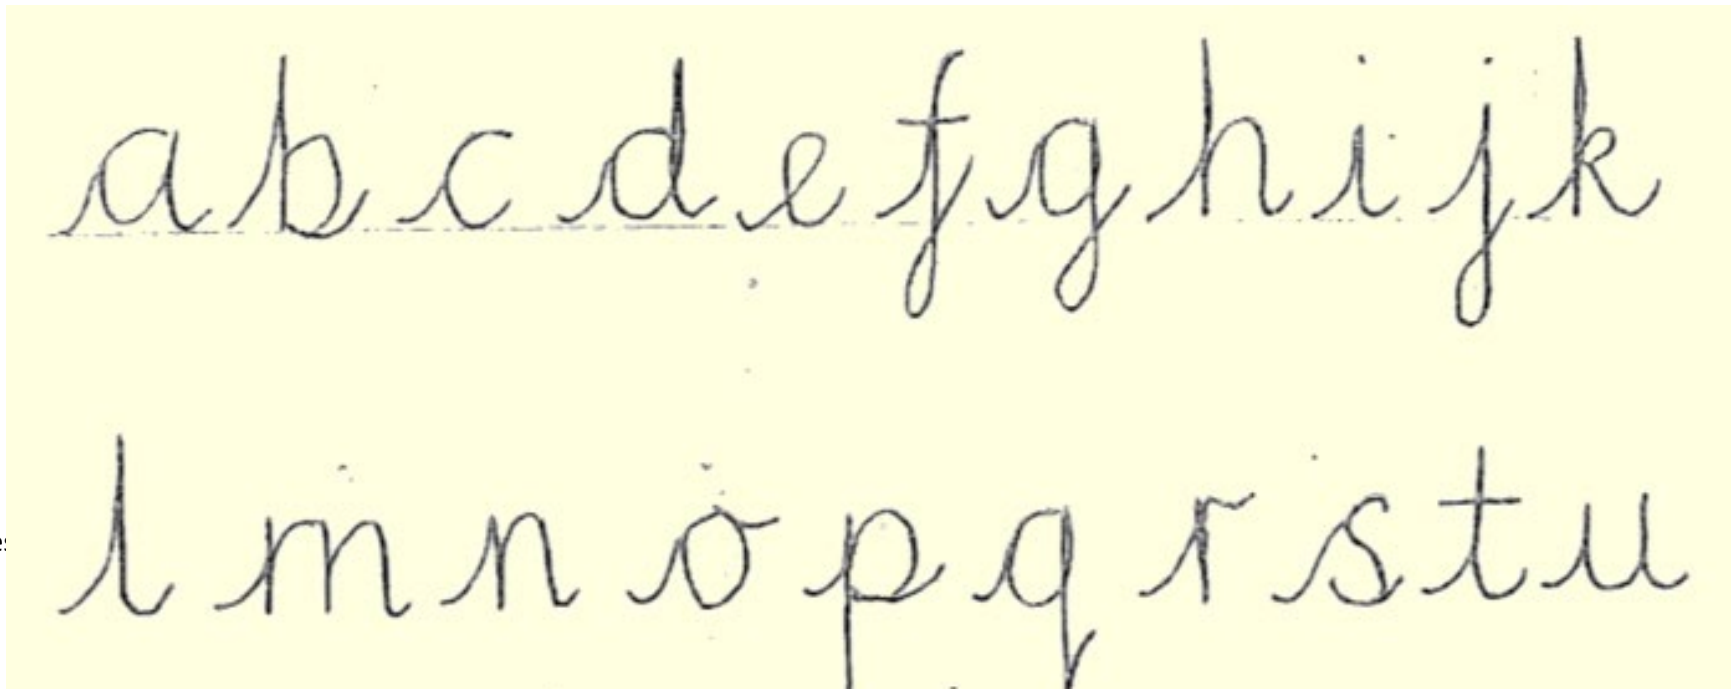 a b c d e f g h i j k
l m n o p q r s t u